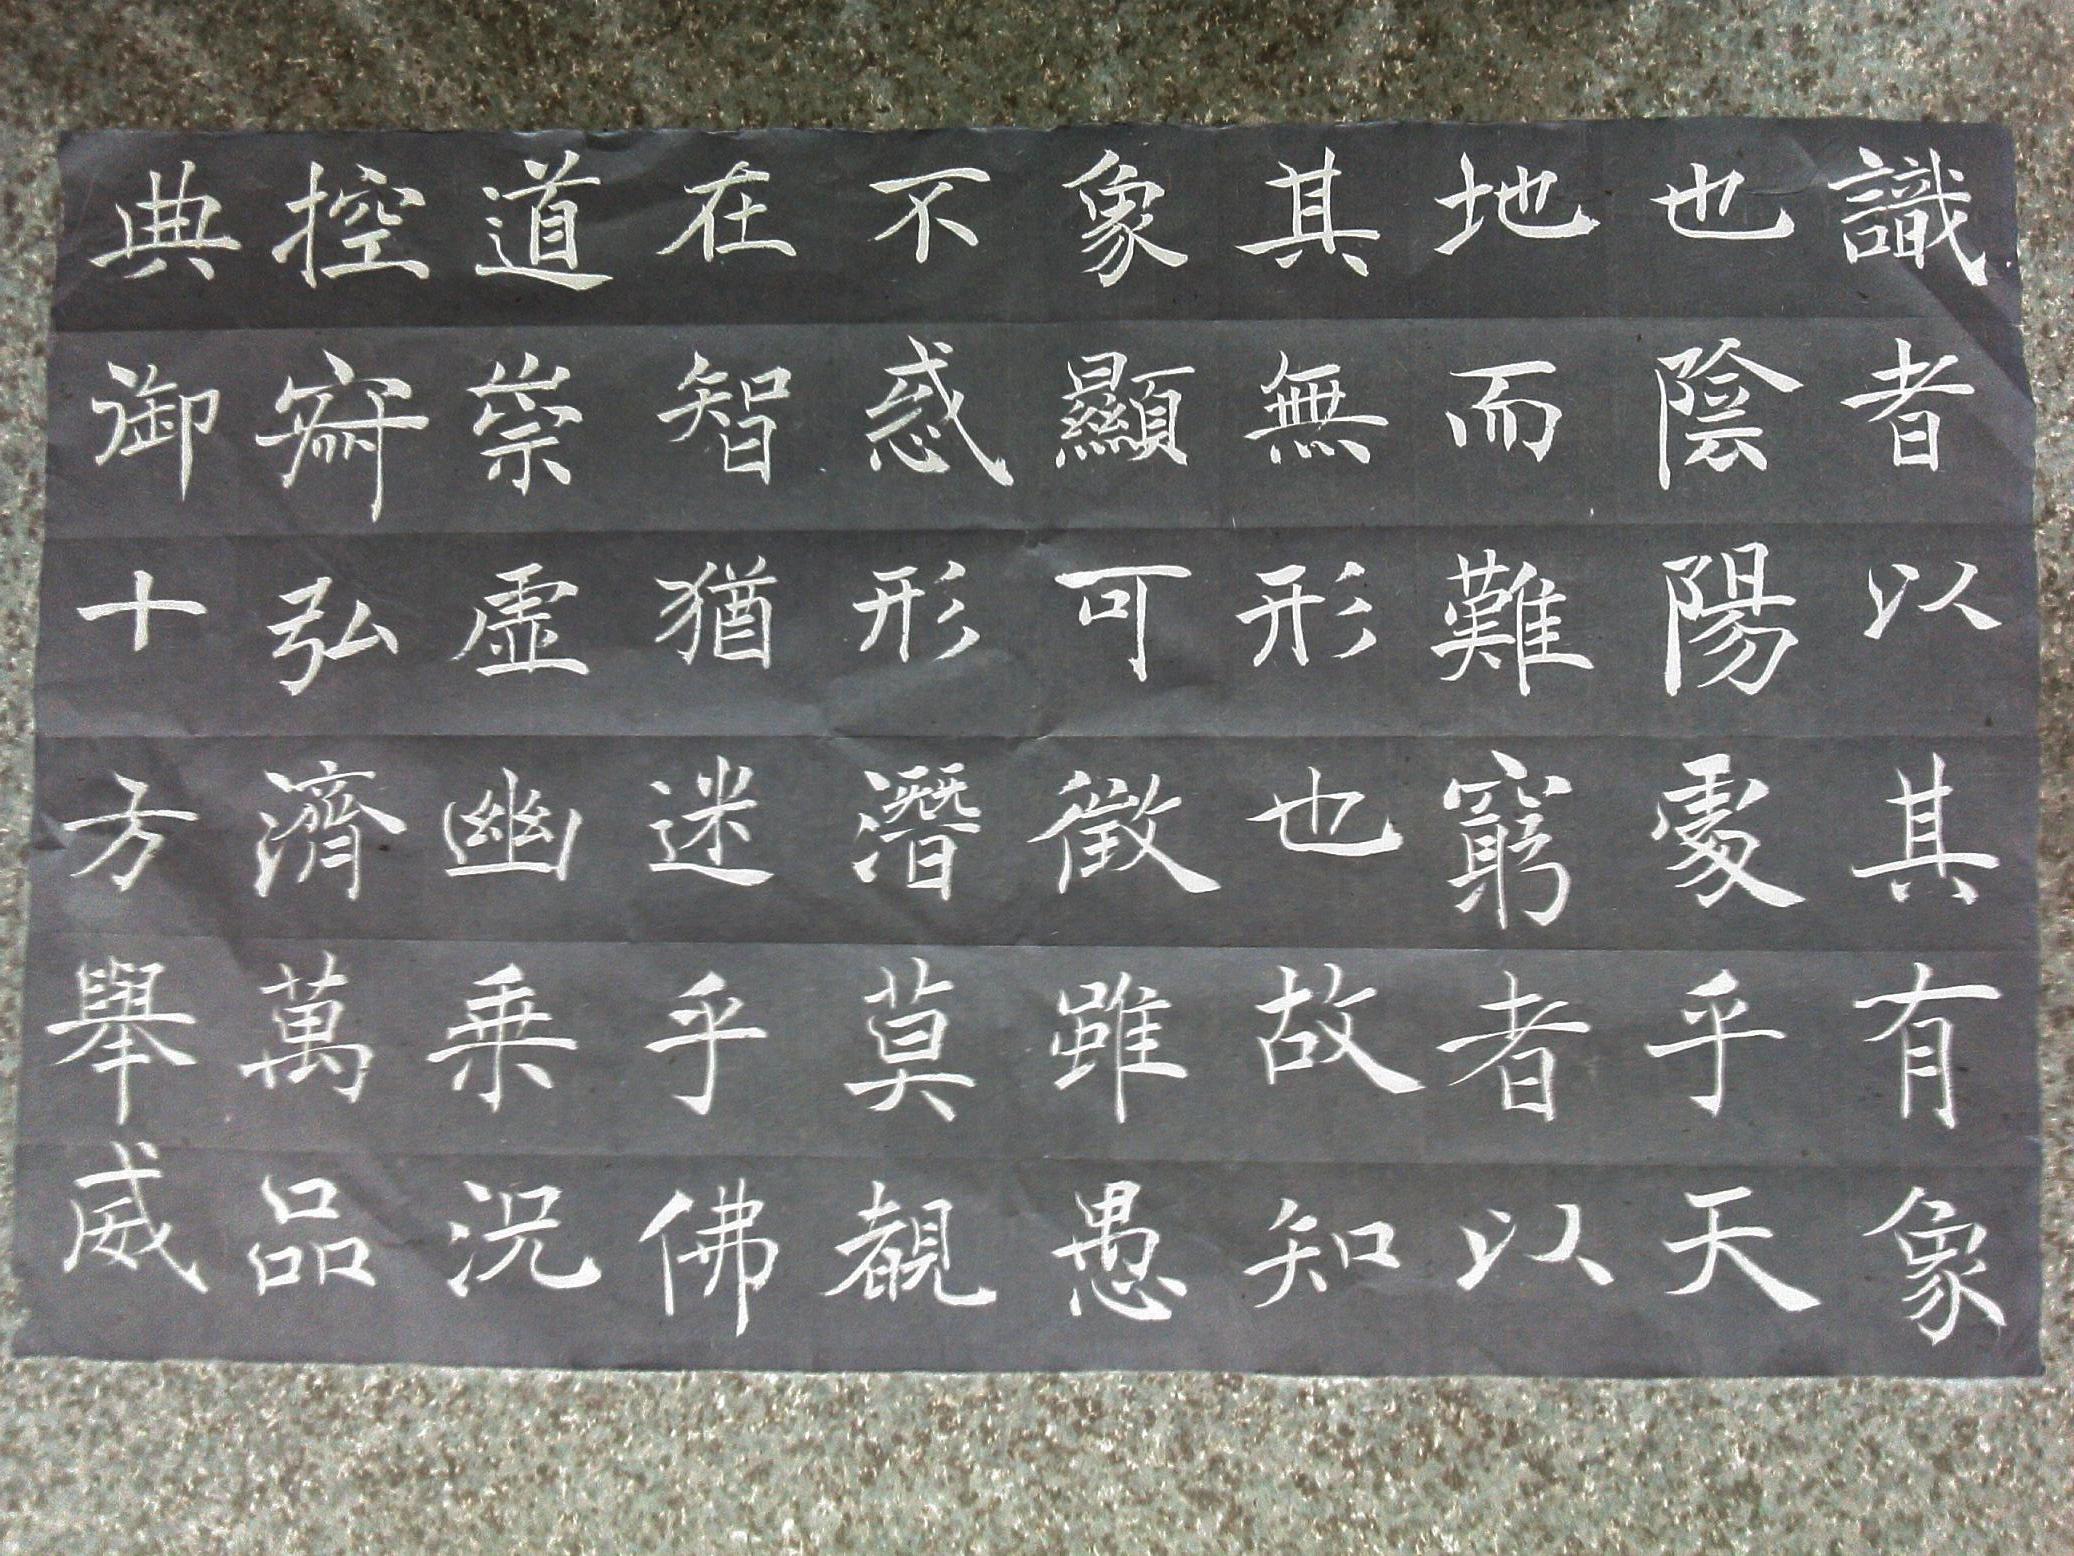 識者以其有象
也陰陽處乎天
地而難窮者以
其無形也故知
象顯可徵雖愚
不惑形潛莫覩
在智猶迷乎佛
道崇虛幽乗況
控寂弘濟萬品
典御十方舉威